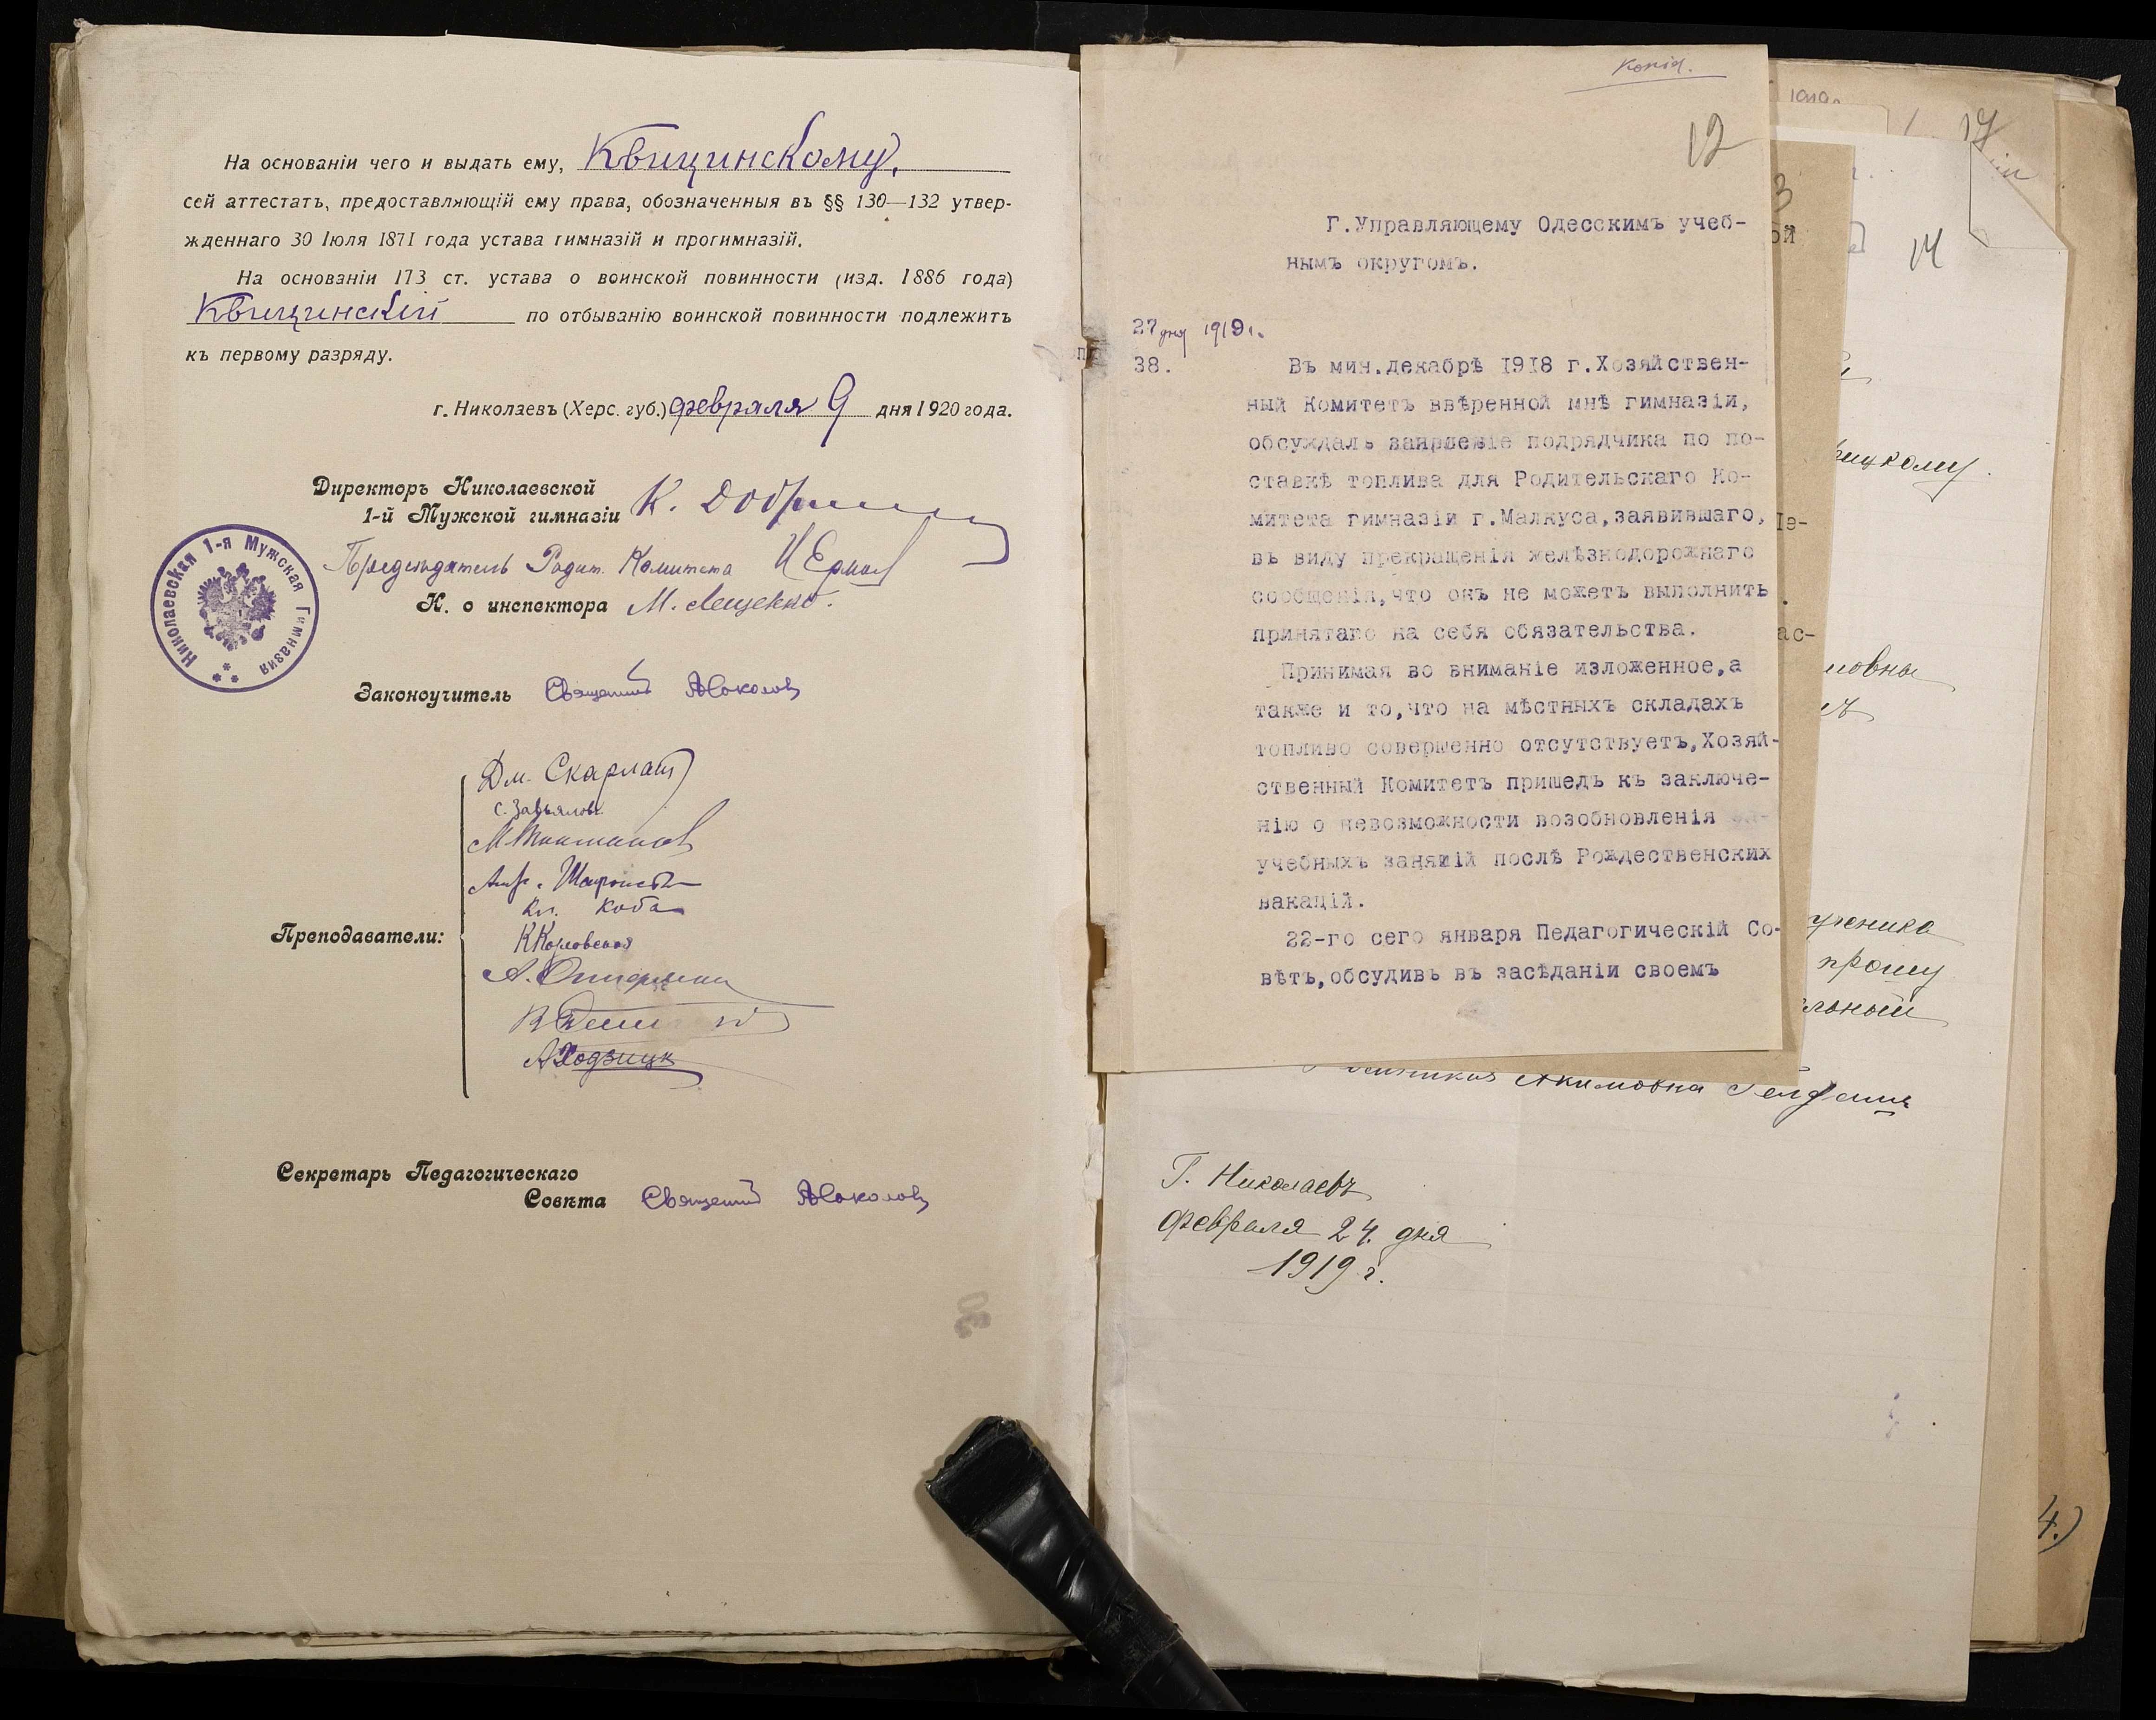 На основаніи чего и выдать ему, Квицинскому,
сей аттестатъ, предоставляющій ему права, обозначенныя въ §§ 130—132 утвер-
жденнаго 30 Іюля 1871 года устава гимназій и прогимназій.
На основаніи 173 ст. устава о воинской повинности (изд. 1886 года)
Квицинскій по отбыванію воинской повинности подлежитъ
къ первому разряду.
г. Николаевъ (Херс. губ.) февраля 9 дня 1920 года.
Директоръ Николаевской
1-й Мужской гимназіи К.
Предсѣдатель Родит. Комитета
Н. о инспектора М. Лещенко.
Николаевская 1-я Мужская Гимназия
Законоучитель
Дм. Скарлато
С. Завьялов
Кл. Коба
Преподаватели:
Секретарь Педагогическаго
Совѣта
Копія.
12
Г.Управляющему Одесскимъ учеб-
нымъ округомъ.
27 дня 1919г.
38.
Въ мин.декабрѣ 1918 г.Хозяйствен-
ный Комитетъ ввѣренной мнѣ гимназіи,
обсуждалъ подрядчика по по-
ставкѣ топлива для Родительскаго Ко-
митета гимназіи г.Малкуса,заявившаго,
въ виду прекращенія желѣзнодорожнаго
сообщенія,что онъ не можетъ выполнить
принятаго на себя обязательства.
Принимая во вниманіе изложенное,а
также и то,что на мѣстныхъ складахъ
топливо совершенно отсутствуетъ,Хозяй-
ственный Комитетъ пришелъ къ заключе-
нію о невозможности возобновленія
учебныхъ занятій послѣ Рождественских
вакацій.
22-го сего января Педагогическій Со-
вѣтъ,обсудивъ въ засѣданіи своемъ
1919
17
3
ой
14
ицкому.
Іе-
ас-
мовна
ученика
прошу
льный
Акимовна
Г. Николаевъ
февраля 24. дня
1919 г.
4.)